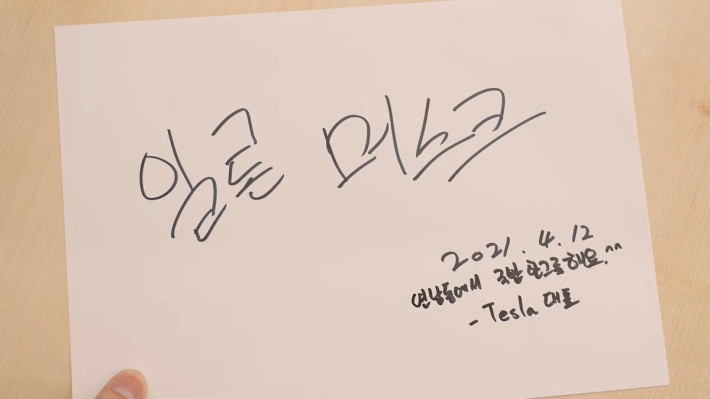 일론 머스크
2021. 4. 12
연남동에서 국밥 한그릇해요.^^
- Tesla 대표